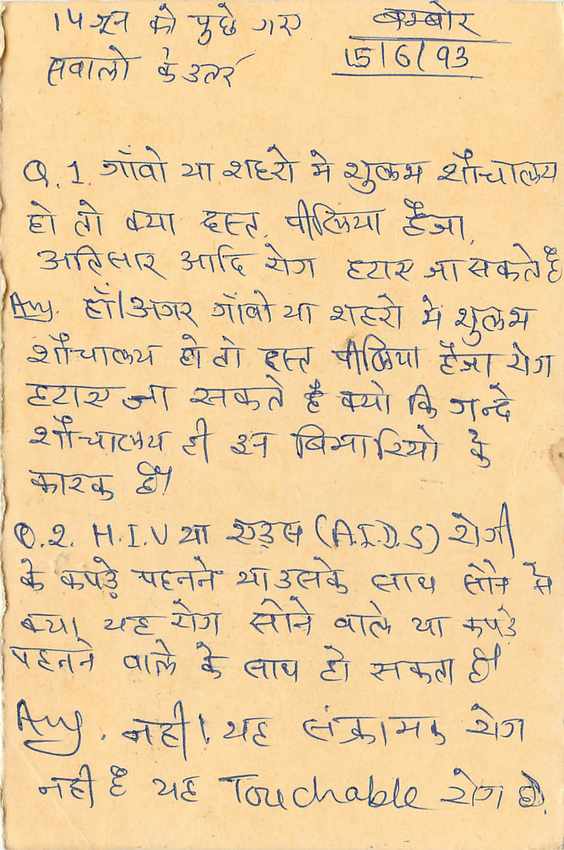 14 जून को पुछे गए
सवालो के उतर
बम्बोर
15/6/93
Q.1. गाँवो या शहरो मे शुलभ शौचालय
हो तो क्या दस्त, पीलिया हैजा,
अतिसार आदि रोग हटाए जा सकते है
Ans. हाँ। अगर गाँवो या शहरो मे शुलभ
शौचालय हो तो दस्त पीलिया हैजा रोग
हटाए जा सकते है क्यो कि गन्दे
शौचालय ही इन बिमारियो के
कारक है।
Q.2. H.I.V या एड्स (A.I.D.S) रोगी
के कपड़े पहनने या उसके साथ सोने से
क्या, यह रोग सोने वाले या कपड़े
पहनने वाले के साथ हो सकता है।
Ans. नही। यह संक्रामक रोग
नही है यह Touchable रोग है।